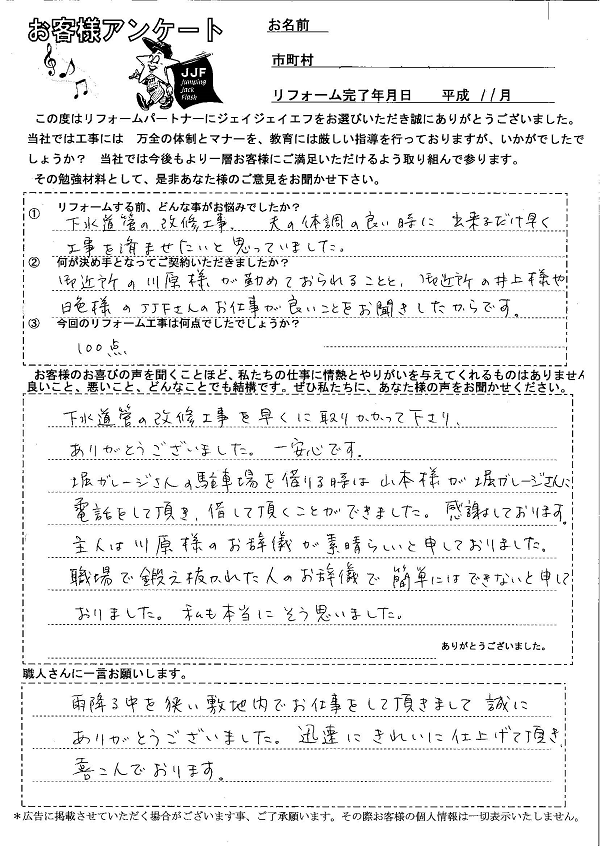 お客様アンケート
お名前
市町村
JJF
Jumping
Jack
Flash
リフォーム完了年月日 平成 11月
この度はリフォームパートナーにジェイジェイエフをお選びいただき誠にありがとうございました。
当社では工事には 万全の体制とマナーを、教育には厳しい指導を行っておりますが、いかがでしたで
しょうか? 当社では今後もより一層お客様にご満足いただけるよう取り組んで参ります。
その勉強材料として、是非あなた様のご意見をお聞かせ下さい。
① リフォームする前、どんな事がお悩みでしたか?
下水道管の改修工事、夫の体調の良い時に 出来るだけ早く
工事を済ませたいと思っていました。
② 何が決め手となってご契約いただきましたか?
御近所の川原様が勤めておられることと、御近所の井上様や
日色様のJJFさんのお仕事が良いことをお聞きしたからです。
③ 今回のリフォーム工事は何点でしたでしょうか?
100点
お客様のお喜びの声を聞くことほど、私たちの仕事に情熱とやりがいを与えてくれるものはありません
良いこと、悪いこと、どんなことでも結構です。ぜひ私たちに、あなた様の声をお聞かせください。
下水道管の改修工事を早くに取りかかって下さり、
ありがとうございました。一安心です。
堀ガレージさんの駐車場を借りる時は山本様が堀ガレージさんに
電話をして頂き、借して頂くことができました。感謝しております。
主人は川原様のお辞儀が素晴らしいと申しておりました。
職場で鍛え抜かれた人のお辞儀で簡単にはできないと申して
おりました。私も本当にそう思いました。
ありがとうございました。
職人さんに一言お願いします。
雨降る中を狭い敷地内でお仕事をして頂きまして誠に
ありがとうございました。迅速にきれいに仕上げて頂き、
喜こんでおります。
*広告に掲載させていただく場合がございます事、ご了承願います。その際お客様の個人情報は一切表示いたしません。